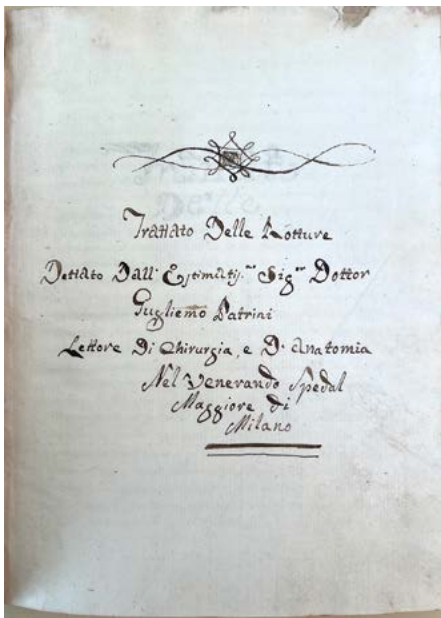 Trattato Delle Rotture
Dettato Dall' Estimatis.mo Sig.r Dottor
Guglielmo Patrini
Lettore Di Chirurgia, e D'Anatomia
Nel Venerando Spedal
Maggiore di
Milano